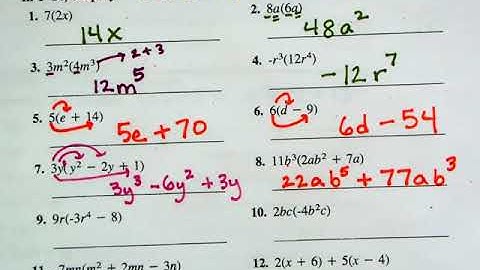 1. 7(2x)
14x
2. 8a(6a)
48a²
3. 3m²(4m³) 2+3
12m⁵
4. -r³(12r⁴)
-12r⁷
5. 5(e + 14)
5e + 70
6. 6(d − 9)
6d − 54
7. 3y(y² − 2y + 1)
3y³ − 6y² + 3y
8. 11b³(2ab² + 7a)
22ab⁵ + 77ab³
9. 9r(-3r⁴ − 8)
10. 2bc(-4b²c)
11. 7mn(m² + 2mn − 3n)
12. 2(x + 6) + 5(x − 4)